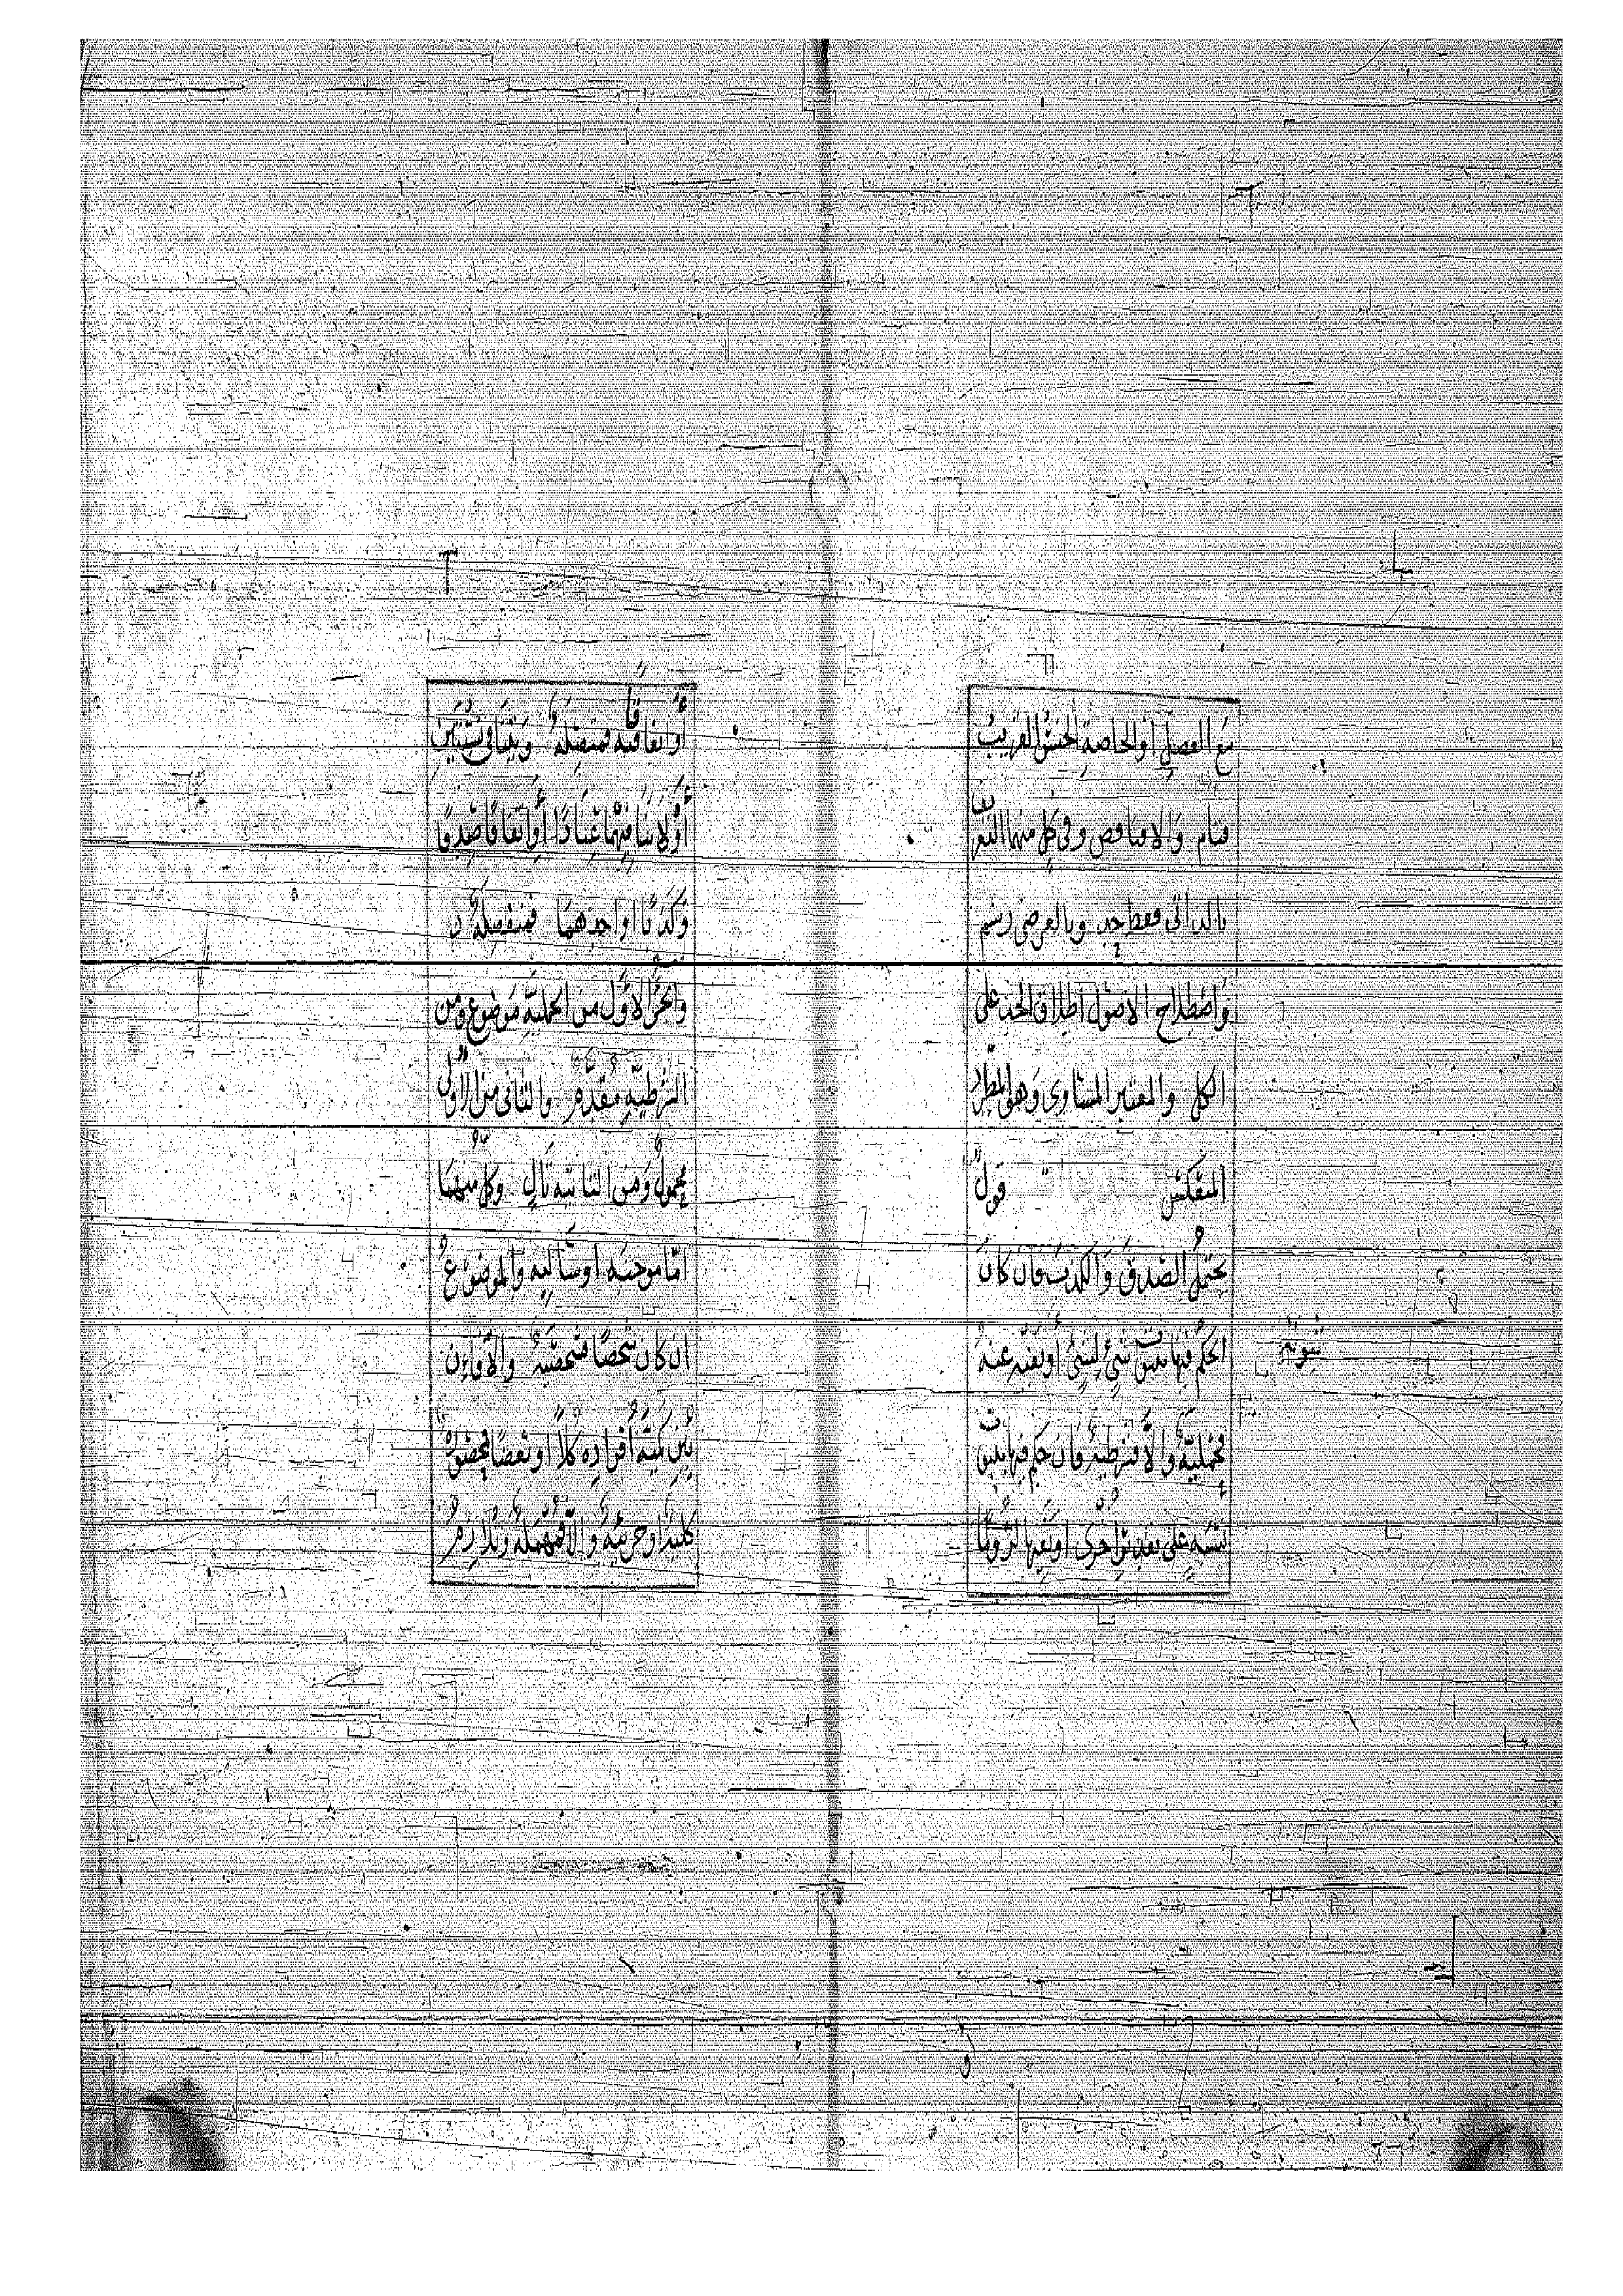 مع الفصل او الخاصة الجنس القريب
فتام والا فناقص وفى كل منهما التعر
بالذاتى فقط حد وبالعرضى رسم
واصطلاح الاصول اطلاق الحد على
الكل والمعتبر المساوى وهو المطرد
المنعكس قول
يحتمل الصدق والكذب فان كان
الحكم فيها بثبوت شئ لشئ او نفيه عنه
فحملية والا فشرطية فان حكم فيها بثبوت
نسبة على تقدير اخرى او نفيها لزوما
او اتفاقا فمتصلة وبتنافى نسبتين
او لا تنافيهما عنادا او اتفاقا صدقا
وكذبا او احدهما فمنفصلة
والجزء الاول من الحملية موضوع ومن
الشرطية مقدم والثانى من الاولى
محمول ومن الثانية تال وكل منهما
اما موجبة او سالبة والموضوع
ان كان شخصا فشخصية والا فان
بين كمية افراده كلا او بعضا فمحصورة
كلية او جزئية والا فمهملة وتلازم